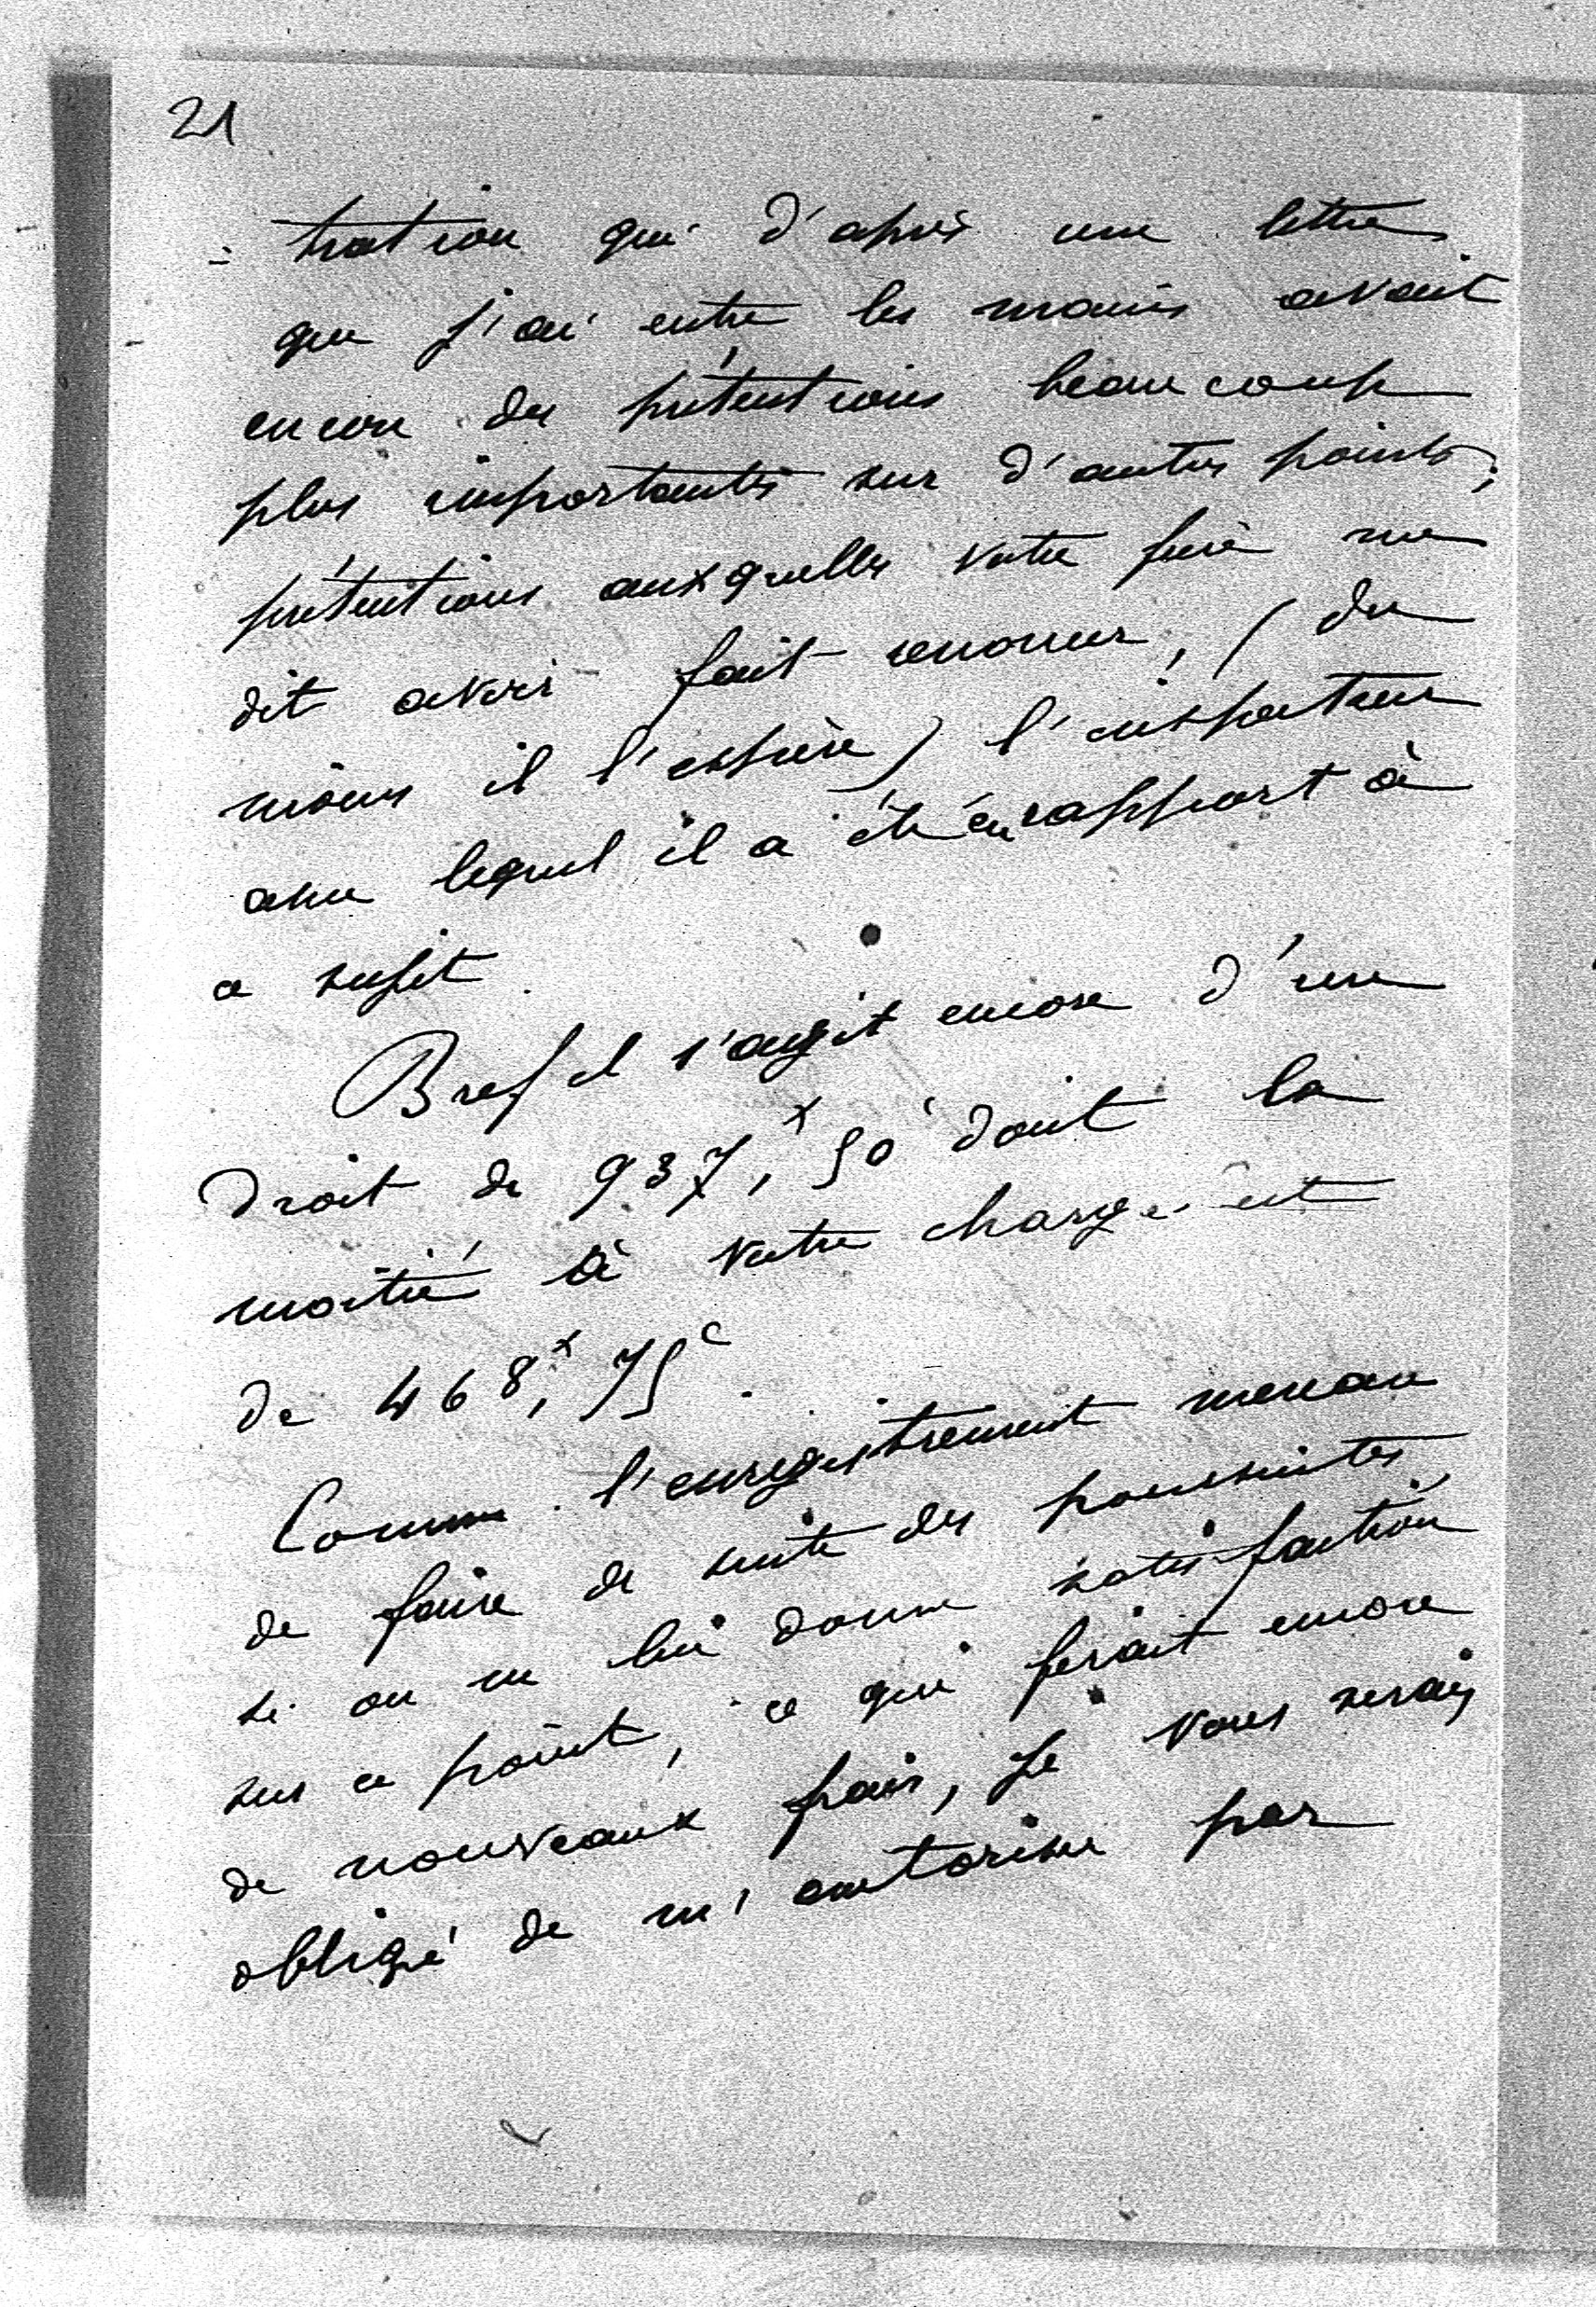 21
= tration qui d'après une lettre
que j'ai entre les mains avait
encore des prétentions beaucoup
plus importantes sur d'autres points;
prétentions auxquelles votre frère me
dit avoir fait renoncer, (du
moins il l'espère) l'inspecteur
avec lequel il a été en rapport à
ce sujet.
Bref il s'agit encore d'un
droit de 937f,50c dont la
moitié à votre charge est
de 468f,75c.
Comme l'enregistrement menace
de faire de suite des poursuites
si on ne lui donne satisfaction
sur ce point, ce qui ferait encore
de nouveaux frais, je vous serais
obligé de m'autoriser par